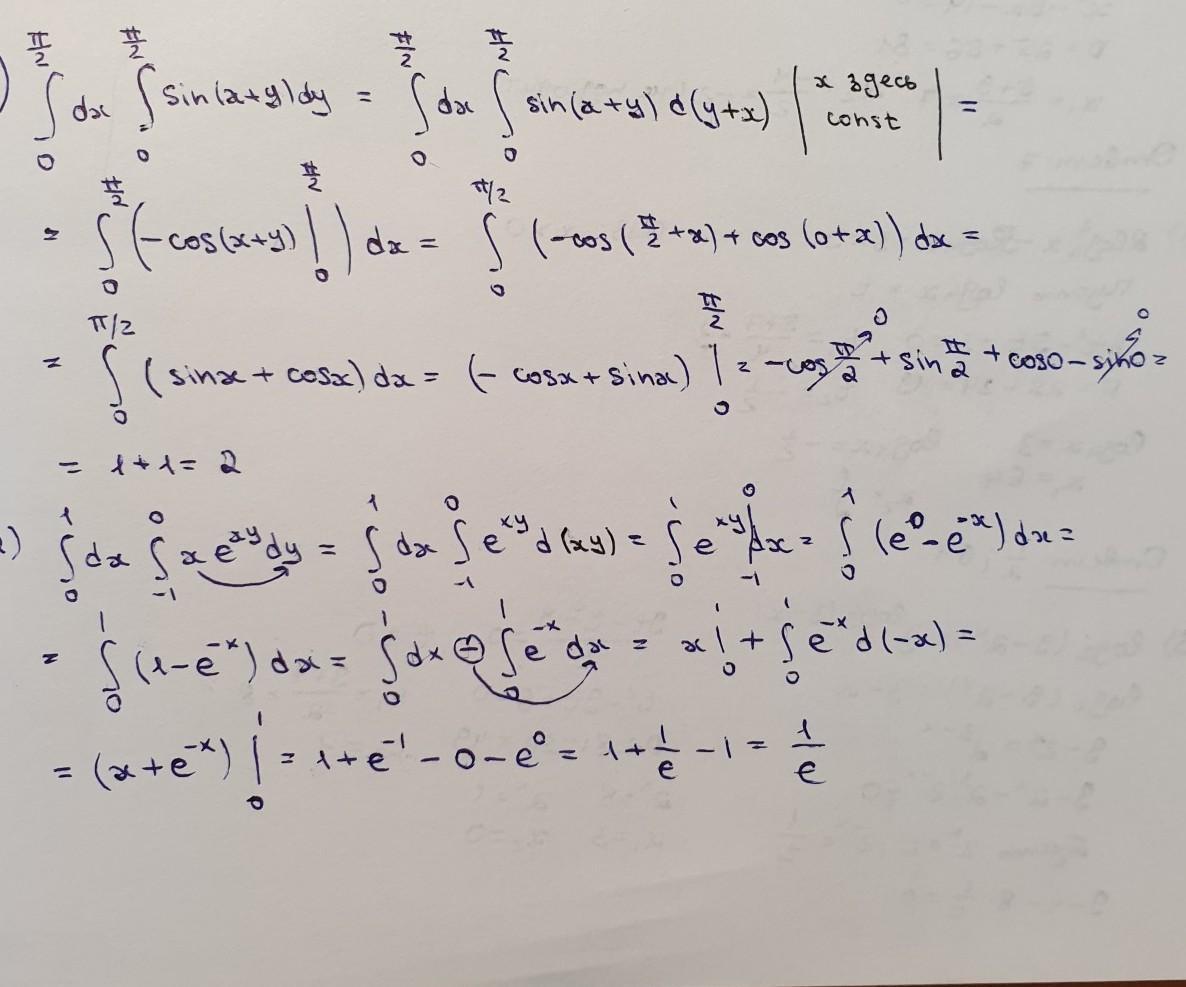 ) ∫_0^{π/2} dx ∫_0^{π/2} sin(x+y)dy = ∫_0^{π/2} dx ∫_0^{π/2} sin(x+y) d(y+x) | x здесь const | =
= ∫_0^{π/2} (-cos(x+y) |_0^{π/2}) dx = ∫_0^{π/2} (-cos(π/2 +x) + cos (0+x)) dx =
= ∫_0^{π/2} (sinx + cosx) dx = (- cosx + sinx) |_0^{π/2} = -cos π/2 ↗0 + sin π/2 + cos0 - sin0 ↗0 =
= 1 + 1 = 2
) ∫_0^1 dx ∫_{-1}^0 x e^{xy} dy = ∫_0^1 dx ∫_{-1}^0 e^{xy} d(xy) = ∫_0^1 e^{xy} |_{-1}^0 dx = ∫_0^1 (e^0 - e^{-x}) dx =
= ∫_0^1 (1-e^{-x}) dx = ∫_0^1 dx ⊖ ∫_0^1 e^{-x} dx = x |_0^1 + ∫_0^1 e^{-x} d(-x) =
= (x+e^{-x}) |_0^1 = 1+e^{-1} - 0 - e^0 = 1 + 1/e - 1 = 1/e